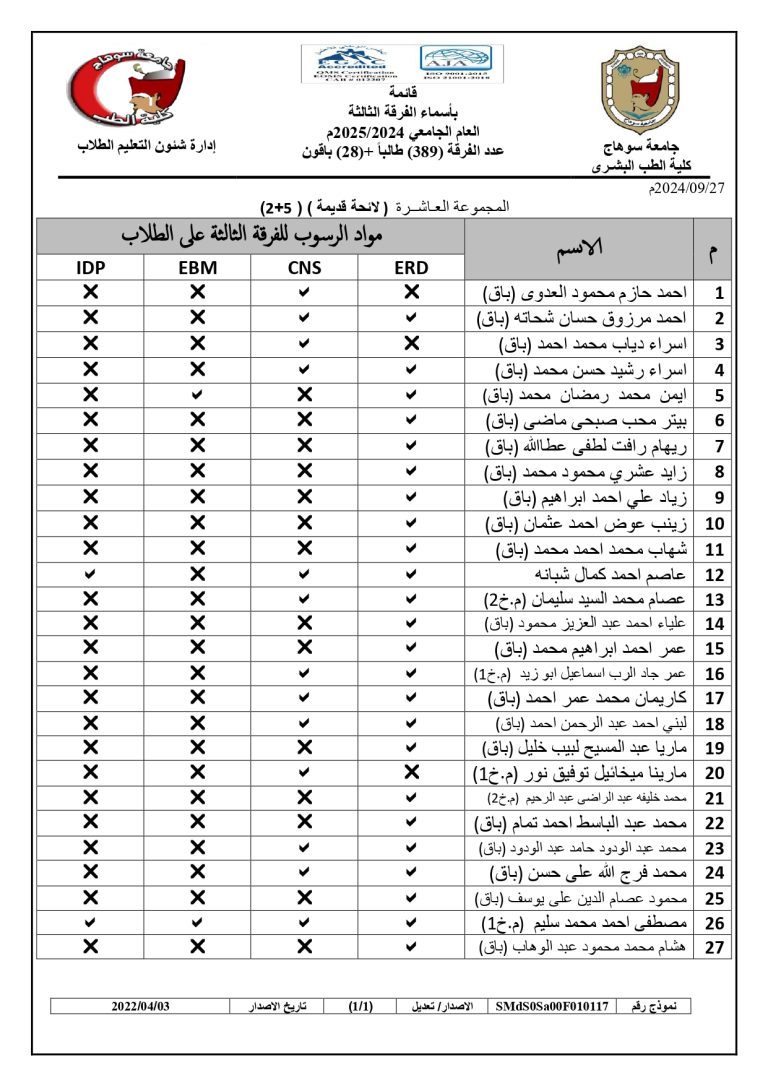 جامعة سوهاج
كلية الطب
EGAC
Accredited
QMS Certification
EOMS Certification
CAB # 012207
AJA
ISO 9001:2015
ISO 21001:2018
قائمة
بأسماء الفرقة الثالثة
العام الجامعي 2025/2024م
عدد الفرقة (389) طالباً +(28) باقون
جامعة سوهاج
كلية الطب البشرى
إدارة شئون التعليم الطلاب
2024/09/27م
المجموعة العاشرة ( لائحة قديمة ) ( 5+2)
م الاسم مواد الرسوب للفرقة الثالثة على الطلاب
ERD CNS EBM IDP
1 احمد حازم محمود العدوى (باق) ❌ ✔ ❌ ❌
2 احمد مرزوق حسان شحاته (باق) ✔ ✔ ❌ ❌
3 اسراء دياب محمد احمد (باق) ❌ ✔ ❌ ❌
4 اسراء رشيد حسن محمد (باق) ✔ ✔ ❌ ❌
5 ايمن محمد رمضان محمد (باق) ✔ ❌ ✔ ❌
6 بيتر محب صبحى ماضى (باق) ✔ ❌ ❌ ❌
7 ريهام رافت لطفى عطاالله (باق) ✔ ❌ ❌ ❌
8 زايد عشري محمود محمد (باق) ✔ ❌ ❌ ❌
9 زياد علي احمد ابراهيم (باق) ✔ ❌ ❌ ❌
10 زينب عوض احمد عثمان (باق) ✔ ❌ ❌ ❌
11 شهاب محمد احمد محمد (باق) ✔ ❌ ❌ ❌
12 عاصم احمد كمال شبانه ✔ ✔ ❌ ✔
13 عصام محمد السيد سليمان (م.خ2) ✔ ✔ ❌ ❌
14 علياء احمد عبد العزيز محمود (باق) ✔ ❌ ❌ ❌
15 عمر احمد ابراهيم محمد (باق) ✔ ❌ ❌ ❌
16 عمر جاد الرب اسماعيل ابو زيد (م.خ1) ✔ ✔ ❌ ❌
17 كاريمان محمد عمر احمد (باق) ✔ ✔ ❌ ❌
18 لبني احمد عبد الرحمن احمد (باق) ✔ ✔ ❌ ❌
19 ماريا عبد المسيح لبيب خليل (باق) ✔ ❌ ❌ ❌
20 مارينا ميخائيل توفيق نور (م.خ1) ❌ ✔ ❌ ❌
21 محمد خليفه عبد الراضى عبد الرحيم (م.خ2) ✔ ❌ ❌ ❌
22 محمد عبد الباسط احمد تمام (باق) ✔ ❌ ❌ ❌
23 محمد عبد الودود حامد عبد الودود (باق) ✔ ✔ ❌ ❌
24 محمد فرج الله على حسن (باق) ✔ ✔ ❌ ❌
25 محمود عصام الدين على يوسف (باق) ✔ ❌ ❌ ❌
26 مصطفى احمد محمد سليم (م.خ1) ✔ ✔ ✔ ✔
27 هشام محمد محمود عبد الوهاب (باق) ✔ ❌ ❌ ❌
نموذج رقم SMdS0Sa00F010117 الاصدار/ تعديل (1/1) تاريخ الاصدار 2022/04/03